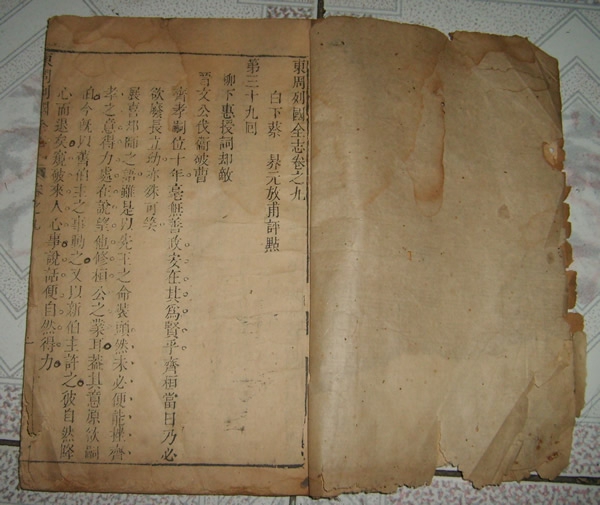 東周列國全志卷之九
白下蔡 元放甫評點
第三十九回
柳下惠授詞却敵
晉文公伐衛破曹
齊孝嗣位十年毫無善政安在其為賢乎齊桓當日乃必
欲廢長立幼亦殊可笑
展喜却師之語雖是以先王之命裝頭然未必便能挫齊
孝之意得力處在說望他修桓公之業耳蓋其意原欲嗣
伯今既以舊伯主之事動之又以新伯主許之彼自然降
心而退矣窺破來人心事說話便自然得力
東周列國